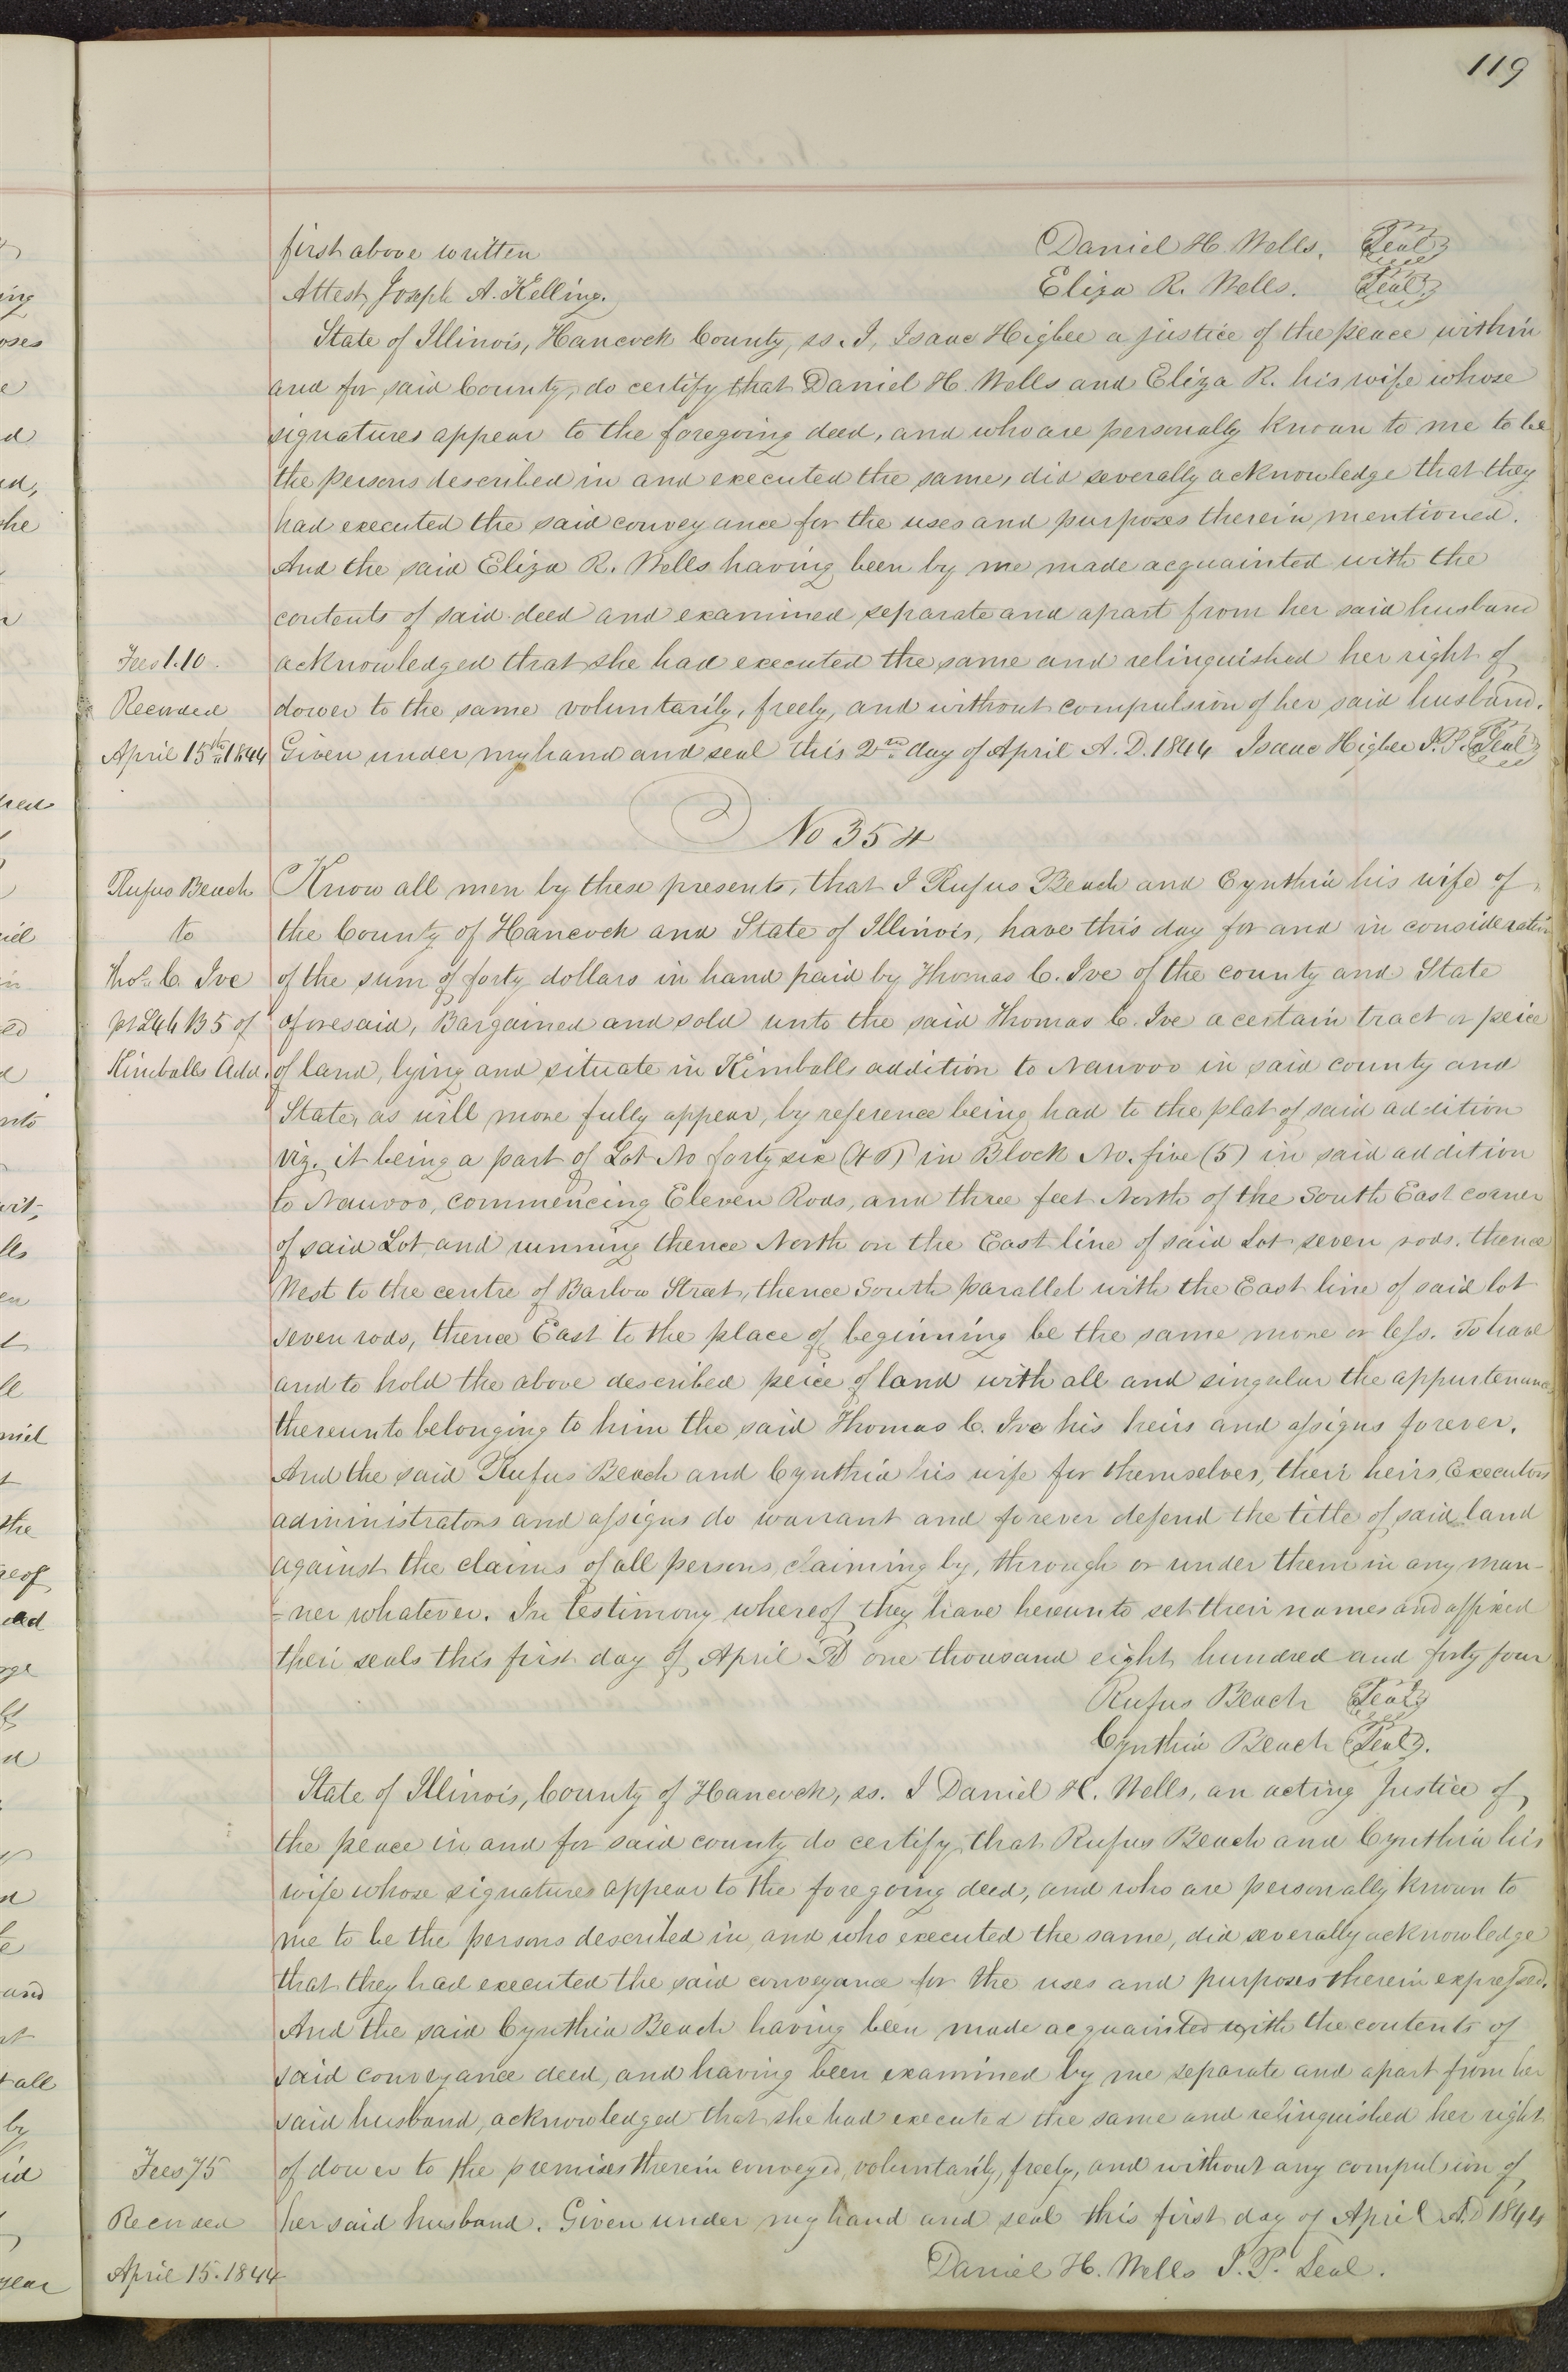 119
first above written Daniel H. Wells. Seal
Attest, Joseph A. Kelling. Eliza R. Wells. Seal
State of Illinois, Hancock County, ss. I, Isaac Higbee a justice of the peace within
and for said County, do certify that Daniel H. Wells and Eliza R. his wife whose
signatures appear to the foregoing deed, and who are personally known to me to be
the persons described in and executed the same, did severally acknowledge that they
had executed the said conveyance for the uses and purposes therein mentioned.
And the said Eliza R. Wells having been by me made acquainted with the
contents of said deed and examined separate and apart from her said husband
Fees 1.10. acknowledged that she had executed the same and relinquished her right of
Recorded dower to the same voluntarily, freely, and without compulsion of her said husband.
April 15th 1844 Given under my hand and seal this 2nd day of April A.D. 1844 Isaac Higbee J.P. Seal
No 354
Rufus Beach Know all men by these presents, that I Rufus Beach and Cynthia his wife of
to the County of Hancock and State of Illinois, have this day for and in consideration
Thos. C. Ive of the sum of forty dollars in hand paid by Thomas C. Ive of the county and State
pt L46 B5 of aforesaid, Bargained and sold unto the said Thomas C. Ive a certain tract or peice
Kimballs Add. of land, lying and situate in Kimballs addition to Nauvoo in said county and
State, as will more fully appear, by reference being had to the plat of said addition
viz. it being a part of Lot No forty six (46) in Block No. five (5) in said addition
to Nauvoo, commencing Eleven Rods, and three feet North of the South East corner
of said Lot, and running thence North on the East line of said Lot seven rods. thence
West to the centre of Barlow Street, thence South parallel with the East line of said lot
seven rods, thence East to the place of beginning be the same more or less. To have
and to hold the above described peice of land with all and singular the appurtenances
thereunto belonging to him the said Thomas C. Ive his heirs and assigns forever.
And the said Rufus Beach and Cynthia his wife for themselves, their heirs, Executors
administrators and assigns do warrant and forever defend the title of said land
against the claims of all persons, claiming by, through or under them in any man-
-ner whatever. In testimony whereof they have hereunto set their names and affixed
their seals this first day of April AD one thousand eight hundred and forty four
Rufus Beach Seal
Cynthia Beach Seal.
State of Illinois, County of Hancock, ss. I Daniel H. Wells, an acting Justice of
the peace in and for said county do certify, that Rufus Beach and Cynthia his
wife whose signatures appear to the foregoing deed, and who are personally known to
me to be the persons described in, and who executed the same, did severally acknowledge
that they had executed the said conveyance for the uses and purposes therein expressed.
And the said Cynthia Beach having been made acquainted with the contents of
said conveyance deed, and having been examined by me separate and apart from her
said husband, acknowledged that she had executed the same and relinquished her right
Fees 75 of dower to the premises therein conveyed, voluntarily, freely, and without any compulsion of
Recorded her said husband. Given under my hand and seal this first day of April A.D 1844
April 15. 1844 Daniel H. Wells J.P. Seal.